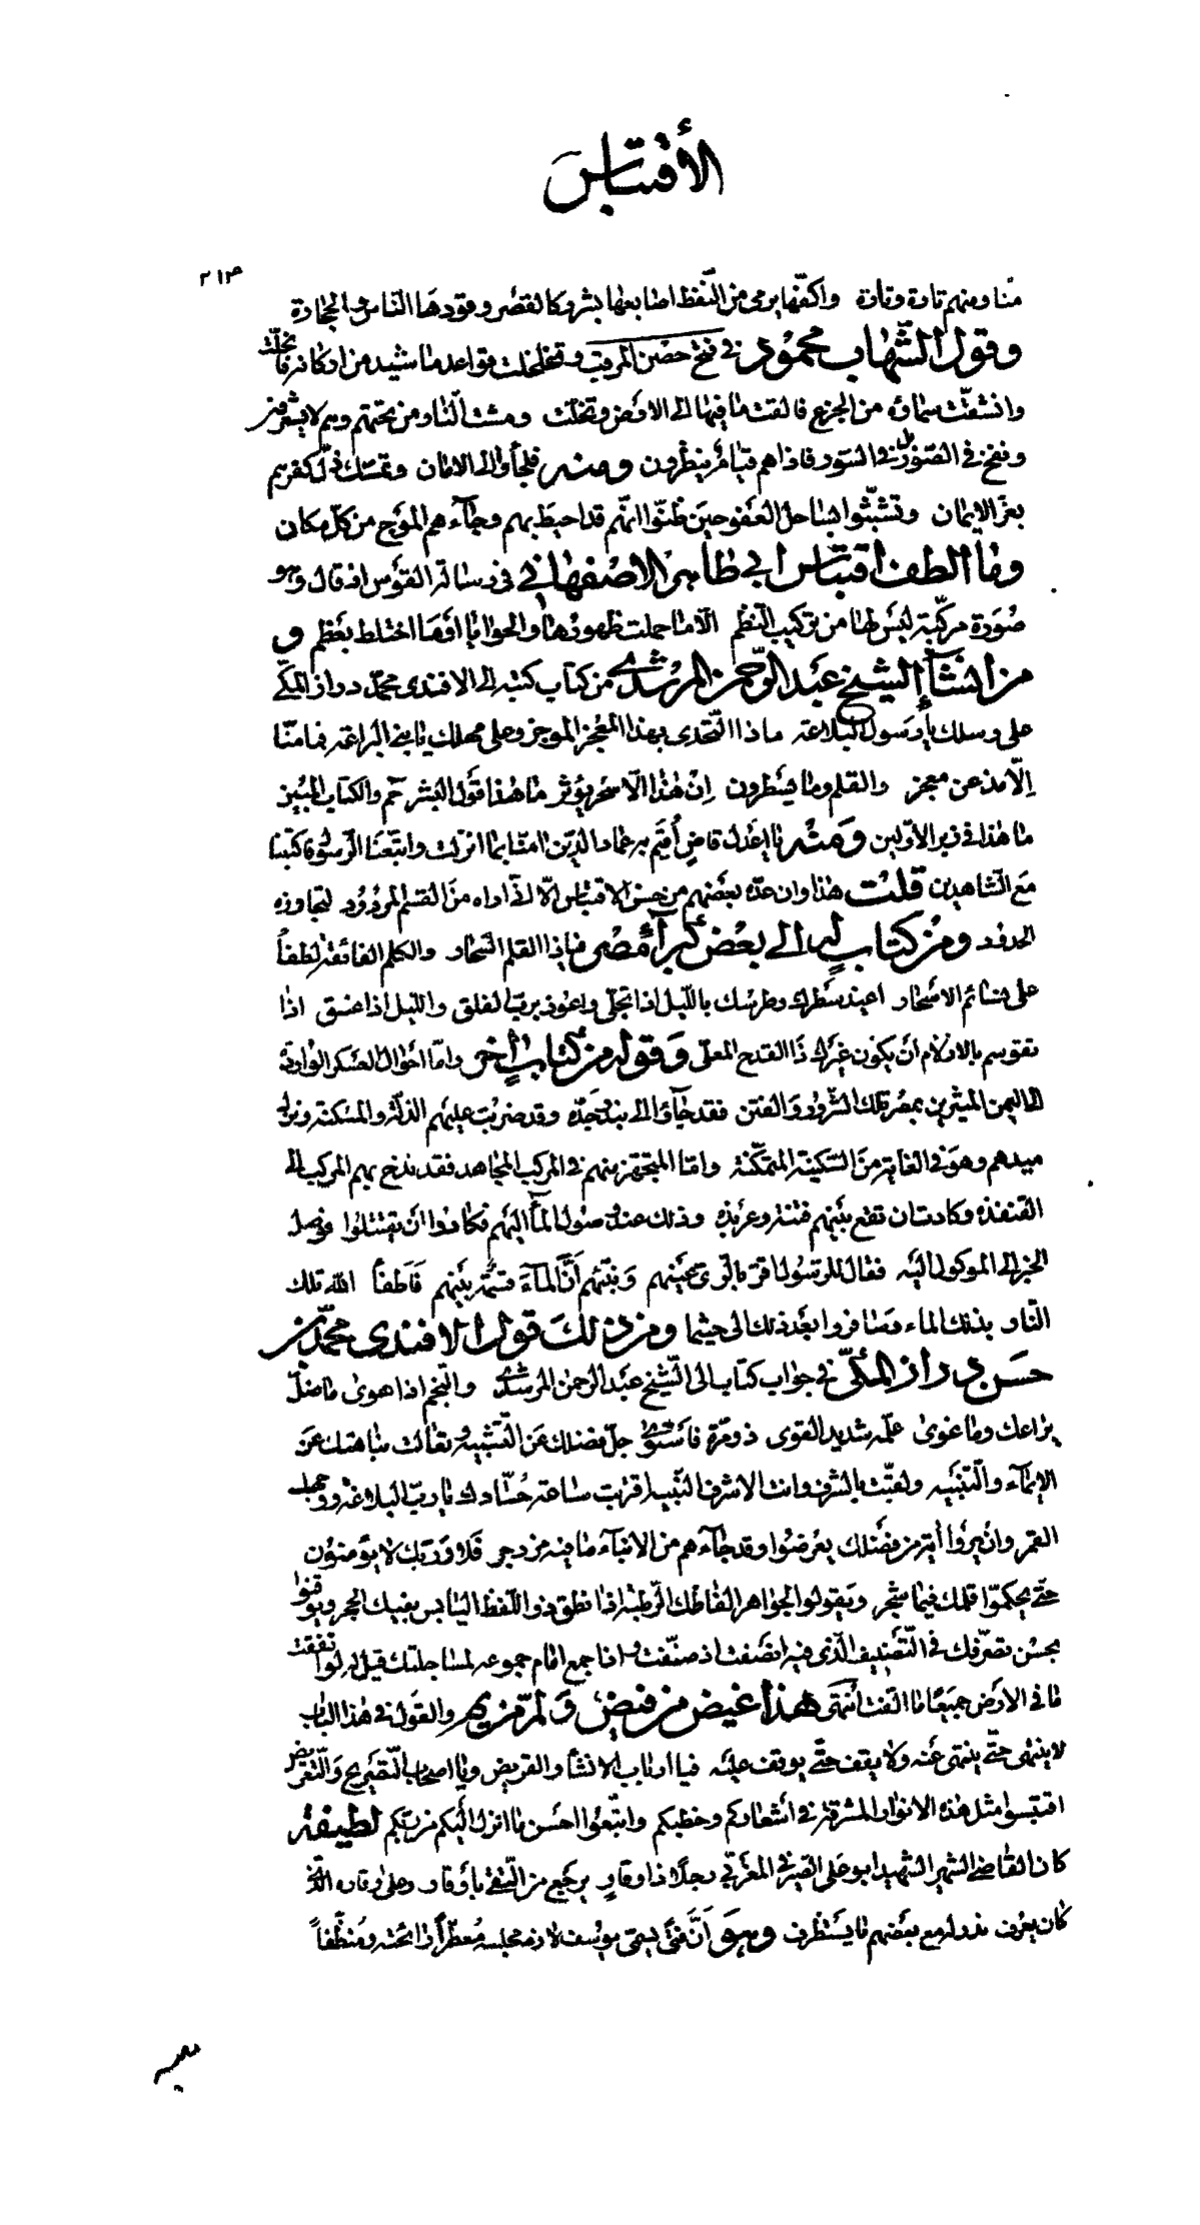 الأقتباس
٢١٣
منا ومنهم تارة وتارة واكفّها يرمى من النّفظ اصابعها بشرر كالقصر وقودها الناس والحجارة
وقول الشّهاب محمود في فتح حصن المرقب وتخلخلت قواعد ما شيد من اركانه فانحلّت
وانشقّت سماؤه من الجزع فالقت ما فيها الى الارض وتخلّت ومشت النّار من تحتهم وهم لا يشعرون
ونفخ في الصّور في السّور فاذا هم قيام ينظرون ومنه فلجأوا الى الامان وتمسّك ذلّ كفرهم
بعزّ الايمان وتشبّثوا بساحل العفو حين ظنّوا انّهم قد احيط بهم وجآءهم الموج من كل مكان
وما الطف اقتباس ابي طاهر الاصفهاني في رسالة القوس اذ قال وهو
صورة مركّبة ليس لها من تركيب النظم الّا ما حملت ظهورهما او الحوايا او ما اختلط بعظم و
من انشآء الشيخ عبد الرّحمن المرشدي من كتاب كتبه الى الافندي محمّد دراز المكّي
على رسلك يا رسول البلاغة ماذا التّحدى بهذا المعجز الموجز وعلى مهلك يا نبي البراعة فما منّا
الّا مذعن معجز والقلم وما يسطرون ان هذا الّا سحر يؤثر ما هذا قول البشر حم والكتاب المبين
ما هذا في زبر الاوّلين ومنه يا اعدل قاض أقيم به عماد الدّين امنّا بما انزلت واتّبعنا الرّسول فاكتبنا
مع الشاهدين قلت هذا وان عدّه بعضهم من حسن الاقتباس الّا انّي اراه من القسم المردود لتجاوزه
الحدود ومن كتاب له الى بعض كبرآء مصر فيا ذا القلم السّحار والكلم الفائقة لطفاً
على نسائم الاسحار اعيذ سطرك وطرسك بالليل اذا تجلّى واعوذ برب الفلق والليل اذا عسق اذا
تقوسم بالازلام أن يكون غيرك ذا القدح المعلّى وقوله من كتاب أخر وامّا احوال العسكر الواردة
الى اليمن المثيرين بمصر تلك الشّرور والفتن فقد جآؤا الى بندر جدّه وقد ضربت عليهم الذلّة والمسكنة ونزل
سيدهم وهو في الغاية من السّكينة المتمكّنة وامّا المتجهّز منهم في المركب المجاهد فقد ندخ بهم المركب الى
القنفذه وكادت ان تقع بينهم فتنة وعربذه وذلك عند وصول المآء اليهم فكادوا أن يقتتلوا فوصل
الخبر الى الموكول اليه فقال للرّسول اقرّ بالرّى عينهم ونبّئهم أنّ المآء قسمة بينهم فأطفأ الله تلك
النّار بذلك الماء وسافروا بعد ذلك الى حيثما ومن ذلك قول الافندي محمّد بن
حسن دراز المكّي في جواب كتاب الى الشّيخ عبد الرحمن المرشدي والنّجم اذا هوى ما ضلّ
يراعك وما غوى علّمه شديد القوى ذو مرّة فاستوى جلّ فضلك عن التّشبيه وتعالت نباهتك عن
الايمآء والتّنبيه ولقبّت بالشرف وانت الاشرف النّبيل اقتربت ساعة حسّادك يا ربّ البلاغة ووجهك
القمر وان يروا أية من فضلك يعرضوا وقد جآءهم من الانبآء ما فيه مزدجر فلا وربّك لا يؤمنون
حتّى يحكّموا قلمك فيما شجر ويقولوا لجواهر الفاظك الرّطبة اذا نطق ذو اللّفظ اليابس بفيك الحجر ويوقنوا
بحسن تصرّفك في التّصنيف الّذى فيه انصفت اذ صنّفت واذا جمع امام جموعه لمساجلتك قيل له لو انفقت
ما في الارض جميعًا ما الّفت انتهى هذا غيض من فيض وقلّ من كثر والقول في هذا الباب
لا ينتهى حتّى ينتهى عنه ولا يقف حتّى يوقف عليه فيا ارباب الانشآء والقريض ويا اصحاب التّصريح والتّعريض
اقتبسوا مثل هذه الانوار المشرقة في أشعاركم وخطبكم واتّبعوا احسن ما انزل اليكم من ربّكم لطيفة
كان القاضي الشهير الشهيد ابو على الصيرفي المغربي رجلًا ذا وقار يرجع من التّقى بأوقار وعلى وقاره الّذي
كان يعرف ندر له مع بعضهم ما يستظرف وهو أنّ فتى يسمّى يوسف لازم مجلسه معطّراً رائحته ومنظّفاً